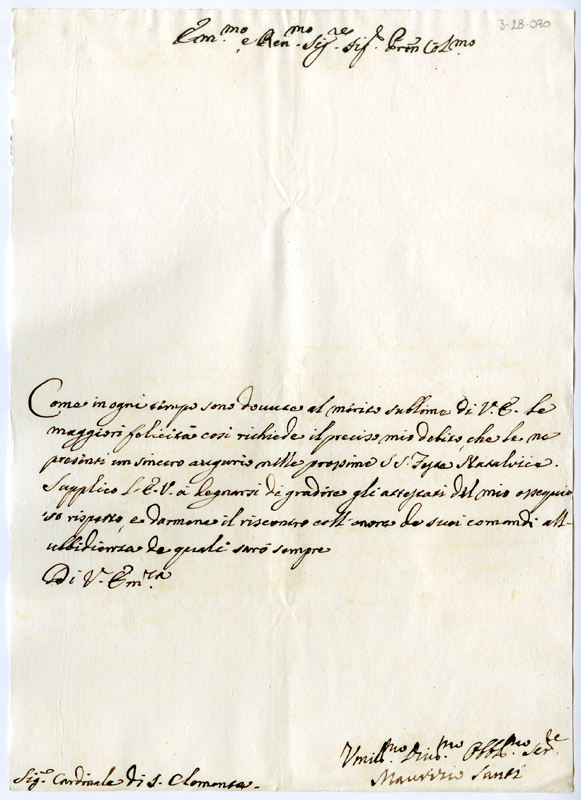 3-28-090
Em.mo e Reu.mo Sig.re Sig.r Pron Col.mo
Come in ogni tempo sono douute al merito sublime di V. E. le
maggiori felicità così richiede il preciso mio debito, che le ne
presenti un sincero augurio nelle prossime SS. Feste Natalizie.
Supplico L. E. V. à degnarsi de gradire gli attestati del mio ossequio
so rispetto, e darmene il riscontro coll' onore de suoi comandi all-
ubbidienza de quali sarò sempre
Di V. Em.za
Vmill.mo Diuo.mo Obbl.mo Ser.re
Maurizio Santi
Sig.r Cardinale di S. Clemente.